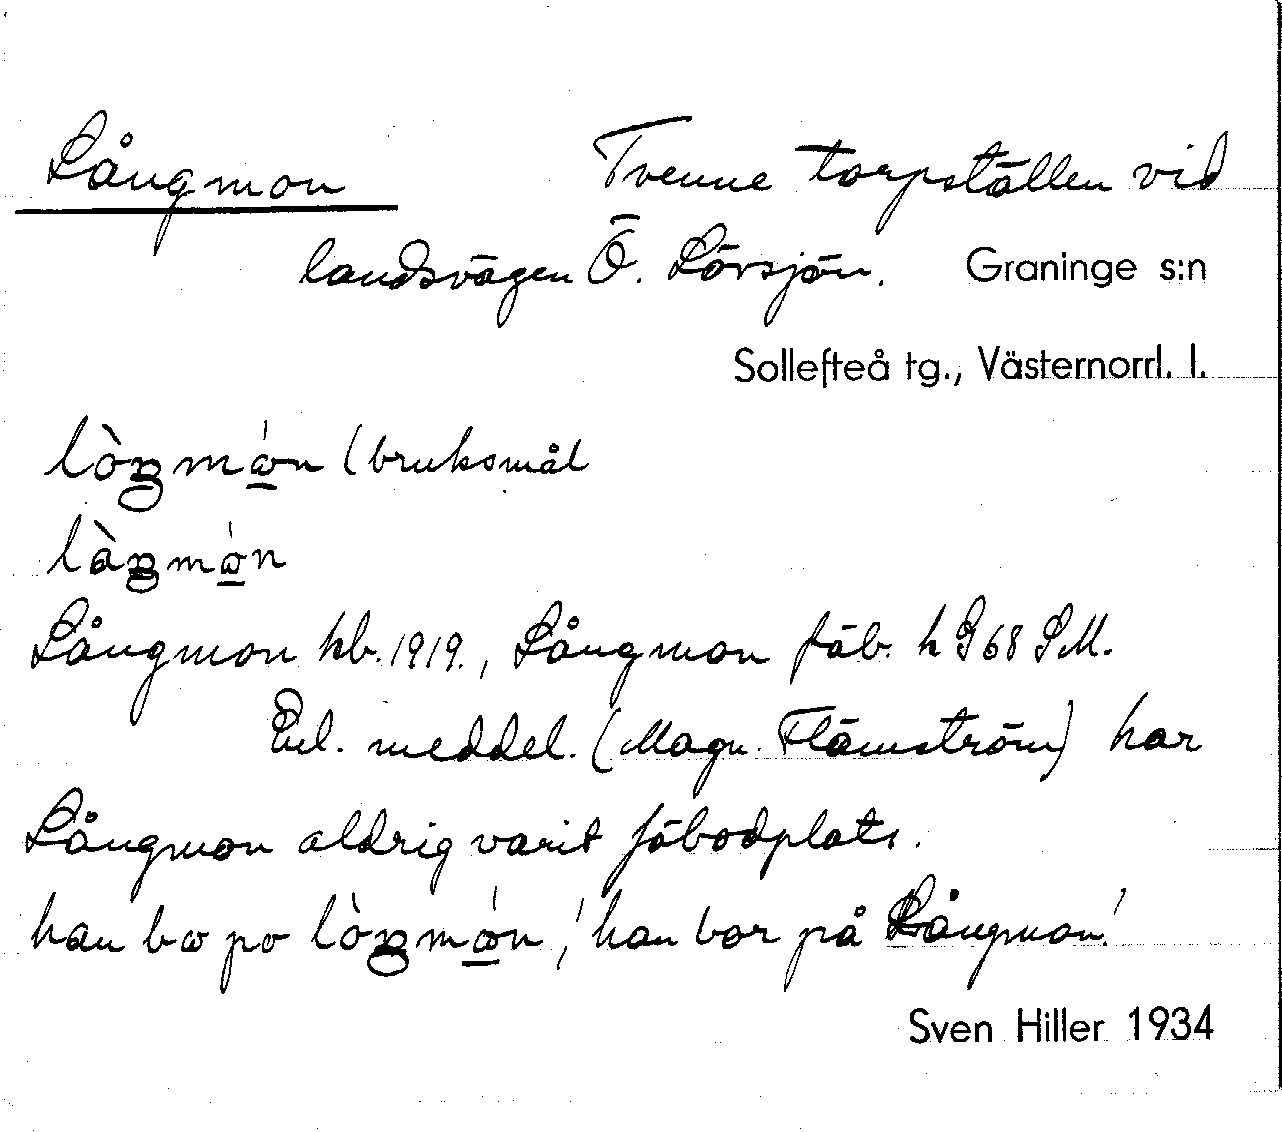 Långmon Tvenne torpställen vid
landsvägen Ö. Lövsjön. Graninge s:n
Sollefteå tg., Västernorrl. l.
lòŋmώ̲n (bruksmål
làŋmώ̲n
Långmon kb. 1919., Långmon fäb. h G68 SM.
Enl. meddel. (Magn. Flämström) har
Långmon aldrig varit fäbodplats.
han bω po lòŋmώ̲n, 'han bor på Långmon'
Sven Hiller 1934